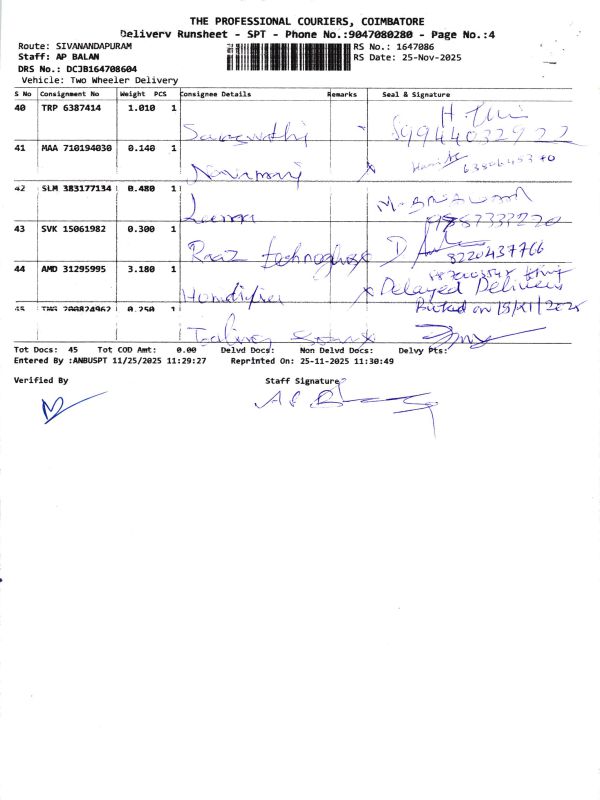 THE PROFESSIONAL COURIERS, COIMBATORE
Delivery Runsheet - SPT - Phone No.:9047080280 - Page No.:4
Route: SIVANANDAPURAM RS No.: 1647086
Staff: AP BALAN RS Date: 25-Nov-2025
DRS No.: DCJB164708604
Vehicle: Two Wheeler Delivery
S No Consignment No Weight PCS Consignee Details Remarks Seal & Signature
40 TRP 6387414 1.010 1
Saraswathi 9944032922
41 MAA 710194030 0.140 1
Navamani
42 SLM 383177134 0.480 1
43 SVK 15061982 0.300 1
8220437766
44 AMD 31295995 3.180 1
Delayed Delivery
Booked on 15/XI/2025
45 200824962 0.250 1
Tot Docs: 45 Tot COD Amt: 0.00 Delvd Docs: Non Delvd Docs: Delvy Pts:
Entered By :ANBUSPT 11/25/2025 11:29:27 Reprinted On: 25-11-2025 11:30:49
Verified By Staff Signature